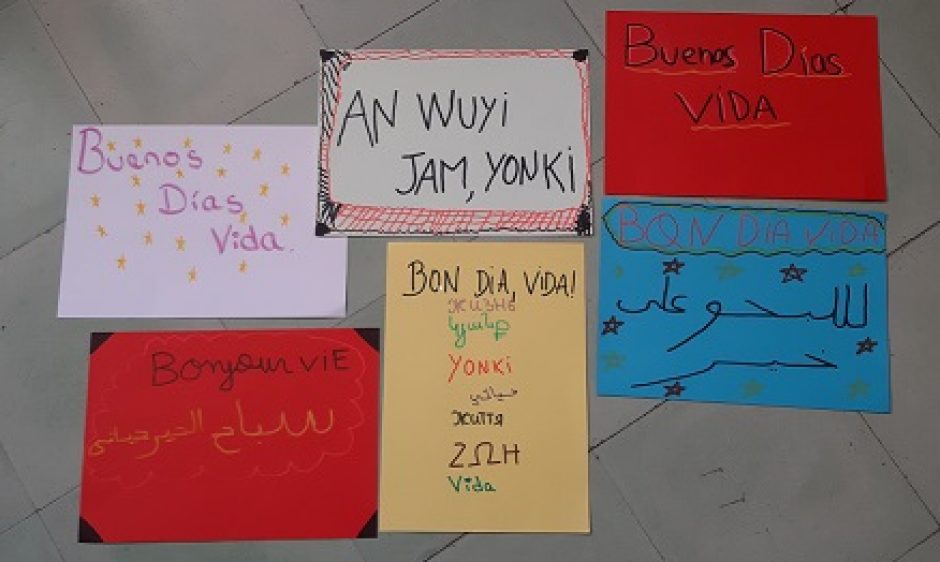 Buenos
Días
Vida.
AN WUYI
JAM, YONKI
Buenos Días
VIDA
BON DIA, VIDA!
ЖИЗНЬ
կյանք
YONKi
حياتي
ЖИТТЯ
ΖΩΗ
Vida
BON DIA VIDA
Bonjour VIE
سباح الخير حياتي